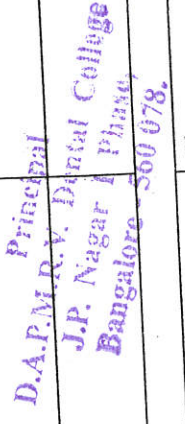 Principal
D.A.P.M.R.V. Dental College
J.P. Nagar I Phase,
Bangalore-560 078.